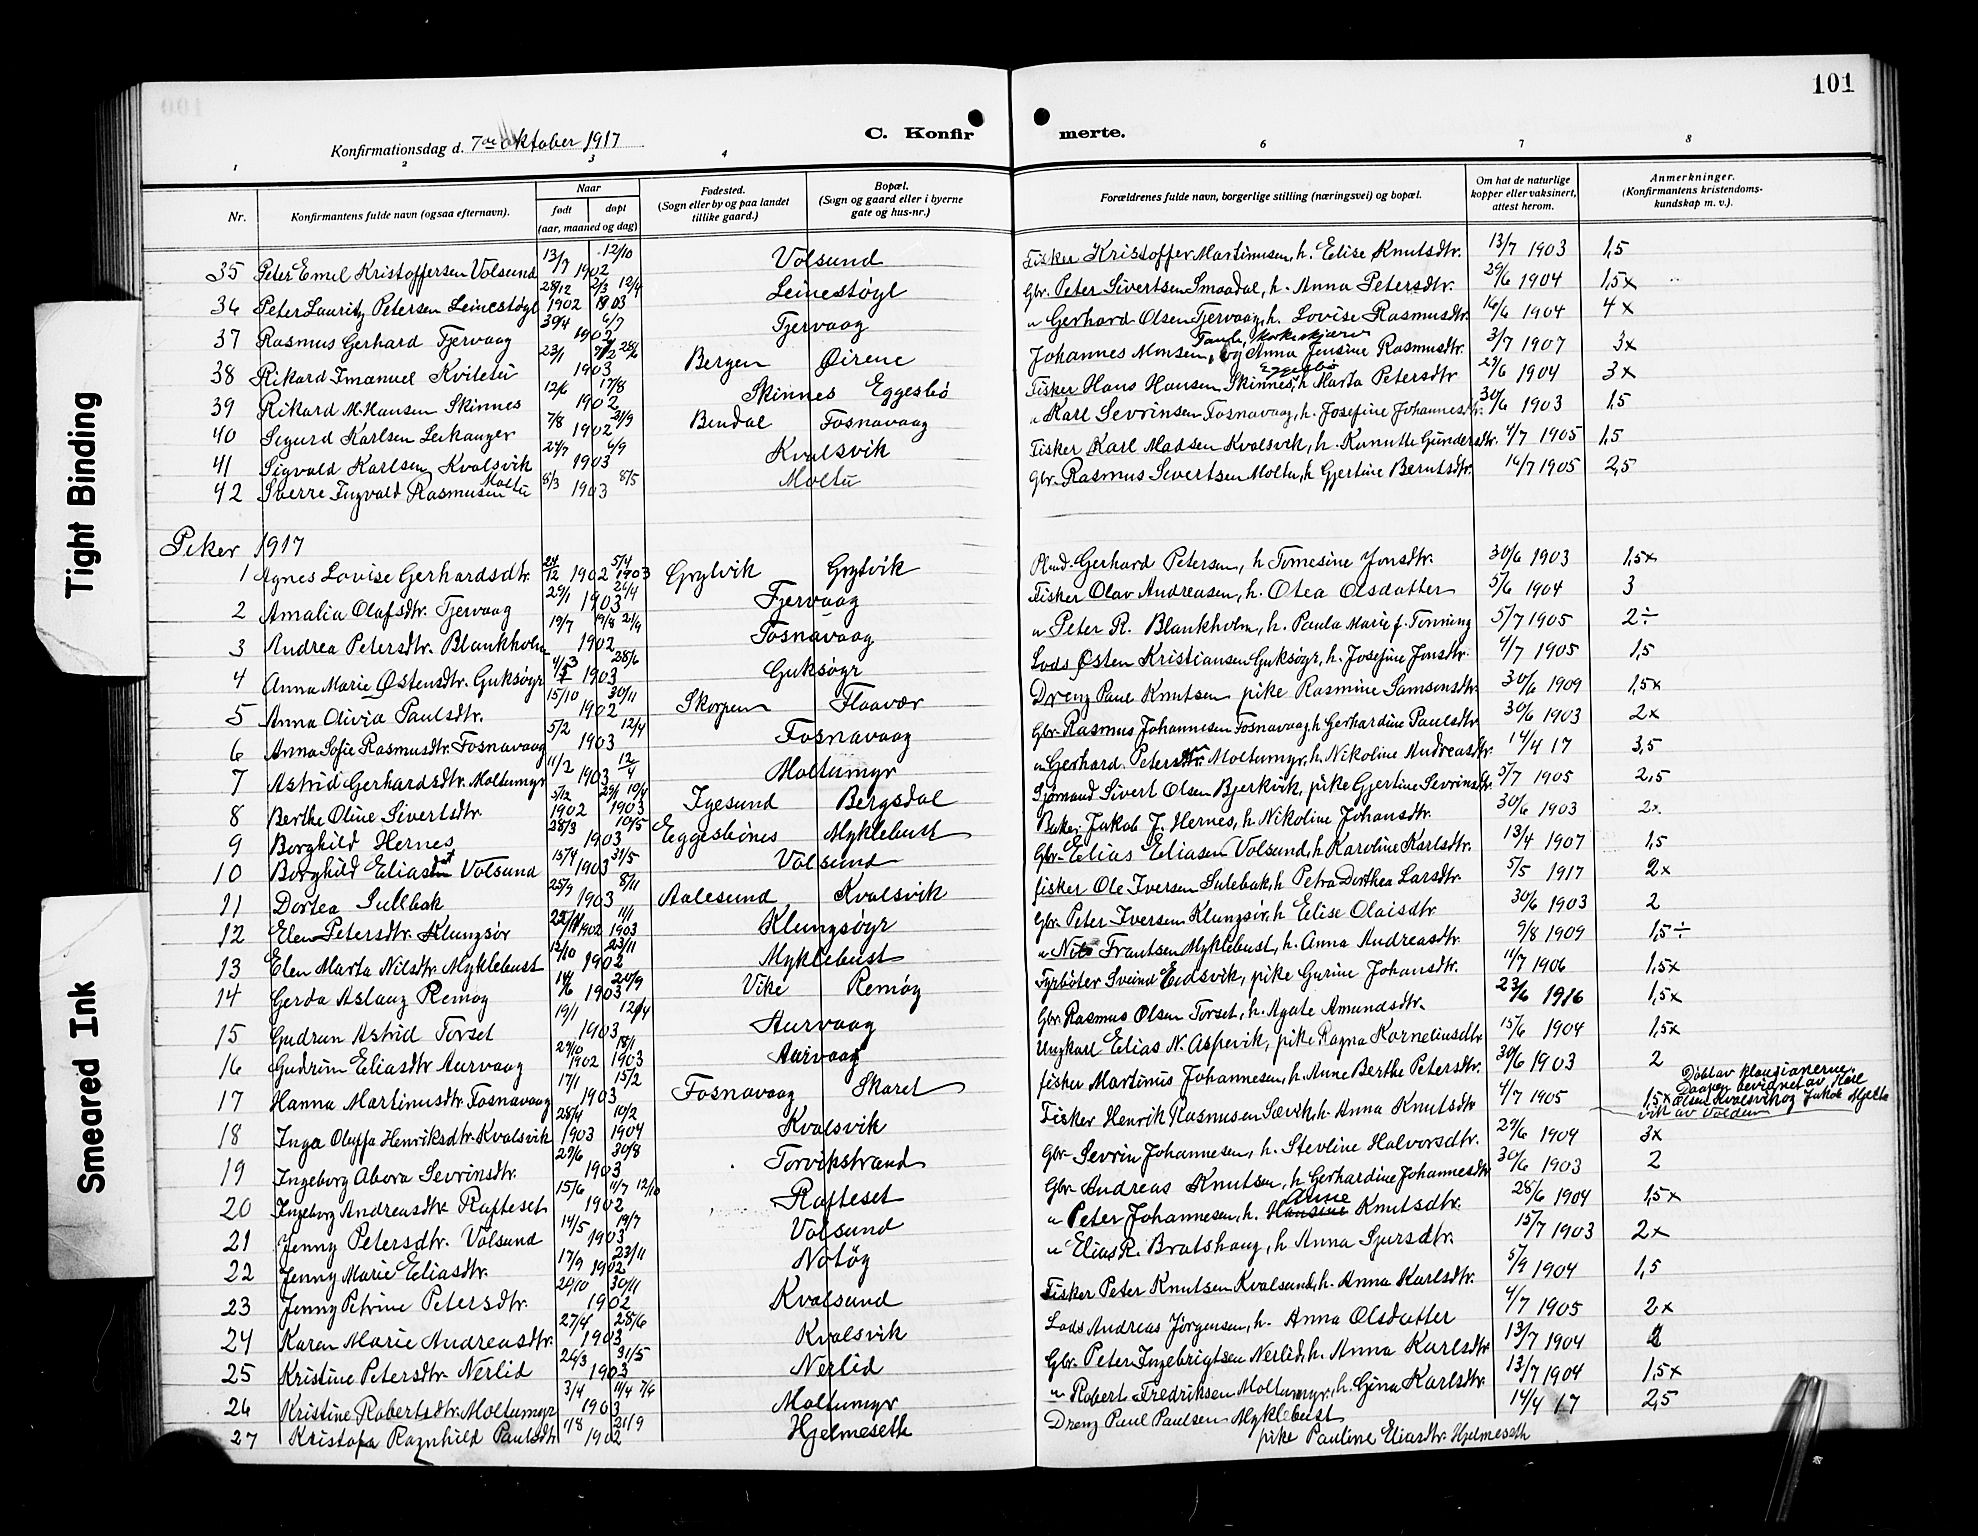 101
Konfirmationsdag d. 7de Oktober 1917
C. Konfirmerte.
1 2 3 4 6 7 8
Nr.
Konfirmantens fulde navn (ogsaa efternavn).
Naar
født døpt
(aar, maaned og dag)
Fødested.
(Sogn eller by og paa landet
tillike gaard.)
Bopæl.
(Sogn og gaard eller i byerne
gate og hus-nr.)
Forældrenes fulde navn, borgerlige stilling (næringsvei) og bopæl.
Om hat de naturlige
kopper eller vaksinert,
attest herom.
Anmerkninger.
(Konfirmantens kristendoms-
kundskap m. v.).
35 Peter Emil Kristoffersen Volsund 13/7 12/10 1902 Volsund Fisker Kristoffer Martinusen, h. Elise Knutsdtr. 13/7 1903 1,5
36 Peter Lauritz Petersen Leinestøyl 28/12 1902 2/3 12/4 1903 Leinestøyl Gbr. Peter Sivertsen Smaadal, h. Anna Petersdtr. 29/6 1904 1,5x
37 Rasmus Gerhard Tjervaag 30/4 6/7 1902 Tjervaag " Gerhard Olsen Tjervaag, h. Lovise Rasmusdtr. 16/6 1904 4x
38 Rikard Imanuel Kviteti 23/1 28/6 1903 Bergen Øirene Johannes Monsen, og Anna Jensine Rasmusdtr. 3/7 1907 3x
39 Rikard M. Hansen Skinnes 12/6 17/8 1902 Skinnes Eggesbø Fisker Hans Hansen Skinnes, h. Marta Petersdtr 29/6 1904 3x
40 Sigurd Karlsen Leikanger 7/8 21/9 1902 Bendal Fosnavaag " Karl Sevrinsen Fosnavaag, h. Josefine Johannesdtr. 30/6 1903 1,5
41 Sigvald Karlsen Kvalsvik 27/7 6/9 1903 Kvalsvik Fisker Karl Madsen Kvalsvik, h. Kunutte Gundersdtr. 4/7 1905 1,5
42 Sverre Ingvald Rasmusen Moltu 8/3 8/5 1903 Moltu Gbr. Rasmus Severtsen Moltu, h Gjertine Berntsdtr. 14/7 1905 2,5
Piker 1917
1 Agnes Lovise Gerhardsdtr. 24/12 1902 5/4 1903 Grytvik Grytvik Gerhard Petersen, h Tomesine Jonsdtr. 30/6 1903 1,5x
2 Amalia Olafsdtr. Tjervaag 29/1 26/4 1903 Tjervaag Fisker Olav Andreasen, h. Otea Olsdatter 5/6 1904 3
3 Andrea Petersdtr. Blankholm 19/7 19/8 21/9 1902 Fosnavaag " Peter R. Blankholm, h. Paula Marie f. Tonning 5/7 1905 2÷
4 Anna Marie Østensdtr. Guksøyr 28/6 1903 Guksøyr Lods Østen Kristiansen Guksøyr, h. Josefine Jonsdtr. 4/7 1905 1,5
5 Anna Olivia Paulsdtr. 15/10 30/11 1902 Skorpen Flaavær Dreng Paul Knutsen pike Rasmine Samsonsdtr. 30/6 1909 1,5x
6 Anna Sofie Rasmusdtr. Fosnavaag 5/2 12/4 1903 Fosnavaag Gbr. Rasmus Johannesen Fosnavaag, h Gerhardine Paulsdtr 30/6 1903 2x
7 Astrid Gerhardsdtr. Moltumyr 11/2 12/4 1903 Moltumyr " Gerhard Petersen Moltumyr, h. Nikoline Andreasdtr. 14/4 17 3,5
8 Berthe Oline Sivertsdtr 5/12 1902 29/1 10/4 1903 Igesund Bergsdal Sjømand Sivert Olsen Bjerkvik, pike Gjertine Sevrinsdtr. 5/7 1905 2,5
9 Borghild Hernes 28/3 10/5 1903 Eggesbönes Myklebust Baker Jakob J. Hernes, h. Nikoline Johansdtr. 30/6 1903 2x
10 Borghild Eliasdtr Volsund 15/4 31/5 1903 Volsund Gbr. Elias Eliasen Volsund, h Karoline Karlsdtr. 13/4 1907 1,5
11 Dortea Sulebak 25/9 8/11 1903 Aalesund Kvalsvik fisker Ole Iversen Sulebak, h Petra Dorthea Larsdtr. 5/5 1917 2x
12 Elen Petersdtr. Klungsör 22/11 1902 11/1 1903 Klungsøyr Gbr. Peter Iversen Klungsör, h Elise Olaisdtr 30/6 1903 2
13 Elen Marta Nilsdtr. Myklebust 13/10 23/11 1902 Myklebust " Nils Frantsen Myklebust, h. Anna Andreasdtr. 9/8 1909 1,5÷
14 Gerda Aslaug Remøy 20/9 1903 Vike Remøy Fyrbøter Sveind Eidsvik, pike Gurine Johansdtr. 11/7 1906 1,5x
15 Gudrun Astrid Torset 19/1 12/4 1903 Aurvaag Gbr. Rasmus Olsen Torset, h. Agate Amundsdtr. 23/6 1916 1,5x
16 Gudrun Eliasdtr Aurvaag 29/10 1902 18/1 1903 Aurvaag Ungkarl Elias N. Aspevik, pike Ragna Korneliusdtr 15/6 1904 1,5x
17 Hanna Martinusdtr. Fosnavaag 17/1 15/2 1903 Fosnavaag Skaret fisker Martinus Johannesen, h. Anne Berthe Petersdtr. 30/6 1903 2
18 Inga Oluffa Henriksdtr. Kvalsvik 28/4 1903 10/2 1904 Kvalsvik Fisker Henrik Rasmusen Sævik, h. Anna Knutsdtr 4/7 1905 1,5x Døbt av klavgianerne. Daapen bevidnet av Karl Olsen Kvalsvik og Jakob Mjelte vik av Volden
19 Ingeborg Abora Sevrinsdtr. 29/6 30/8 1903 Torvikstrand Gbr. Sevrin Johannesen, h. Stevline Halvorsdtr. 29/6 1904 3x
20 Ingeborg Andreasdtr. Rafteset 15/6 11/7 12/10 1902 Rafteset Gbr. Andreas Knutsen, h. Gerhardine Johannesdtr 30/6 1903 2
21 Jenny Petersdtr. Volsund 14/5 19/7 1903 Volsund " Peter Johannesen, h. Hansine Anne Knutsdtr. 28/6 1904 1,5x
22 Jenny Marie Eliasdtr. 17/9 23/11 1902 Notøy " Elias R. Bratshaug, h Anna Sjursdtr. 15/7 1903 2x
23 Jenny Petrine Petersdtr. 20/10 30/11 1902 Kvalsund Fisker Peter Knutsen Kvalsund, h. Anna Karlsdtr. 5/9 1904 1,5
24 Karen Marie Andreasdtr. 27/4 28/6 1903 Kvalsvik Lods Andreas Jørgensen, h. Anna Olsdatter 4/7 1905 2x
25 Kristine Petersdtr. Nerlid 26/3 31/5 1903 Nerlid Gbr. Peter Ingebrigtsen Nerlid, h. Anna Karlsdtr 13/7 1904 2
26 Kristine Robertsdtr. Moltumyr 3/4 11/4 7/6 1903 Moltumyr " Robert Fredriksen Moltumyr, h. Gina Karlsdtr. 13/7 1904 1,5x
27 Kristofa Ragnhild Paulsdtr 1/8 21/9 1902 Hjelmeseth Dreng Paul Paulsen Myklebust 14/4 17 2,5
pike Pauline Eliasdtr. Hjelmeseth
Tight Binding
Smeared Ink